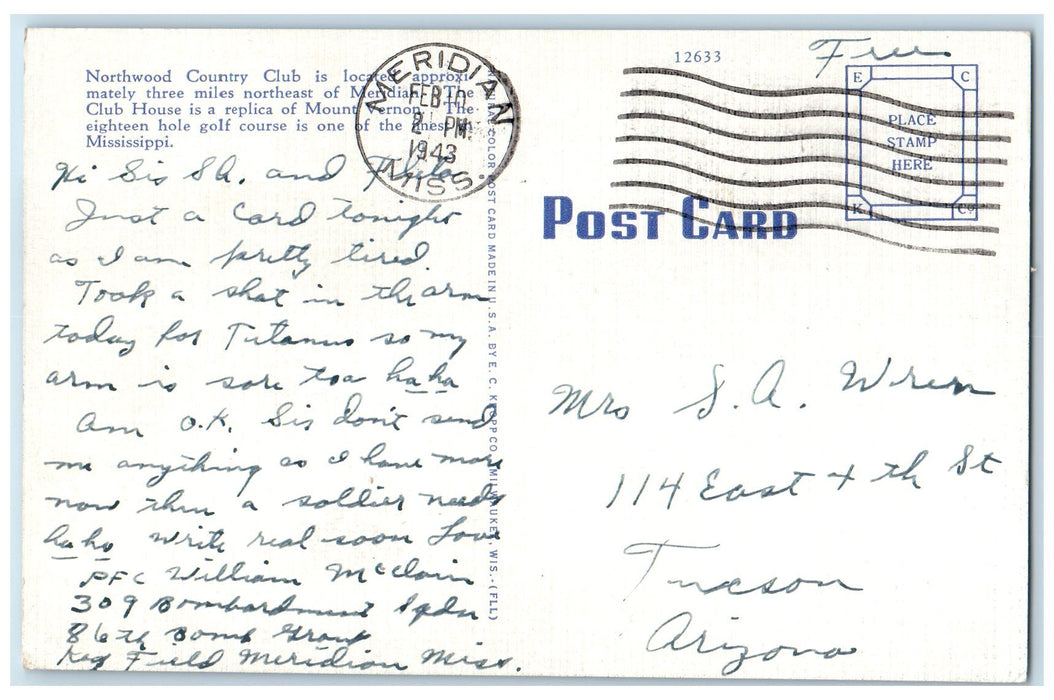 Northwood Country Club is located approxi-
mately three miles northeast of Meridian. The
Club House is a replica of Mount Vernon. The
eighteen hole golf course is one of the finest in
Mississippi.
Hi Sis S.A. and
Just a card tonight
as I am pretty tired.
Took a shot in the arm
today for Titanus so my
arm is sore too ha ha
Am O.K. Sis don't send
me anything as I have more
now then a soldier needs
ha ha write real soon Love
PFC William McClain
309 Bombardment Sqdn
86th Bomb Group
Key Field Meridian Miss.
MERIDIAN
FEB 10
PM
1943
MISS.
COLOR POST CARD MADE IN U.S.A. BY E. C. KROPP CO., MILWAUKEE, WIS.-(FLL)
12633
Free
E C
PLACE
STAMP
HERE
K Co
POST CARD
Mrs S. A. Wren
114 East 4th St
Tucson
Arizona